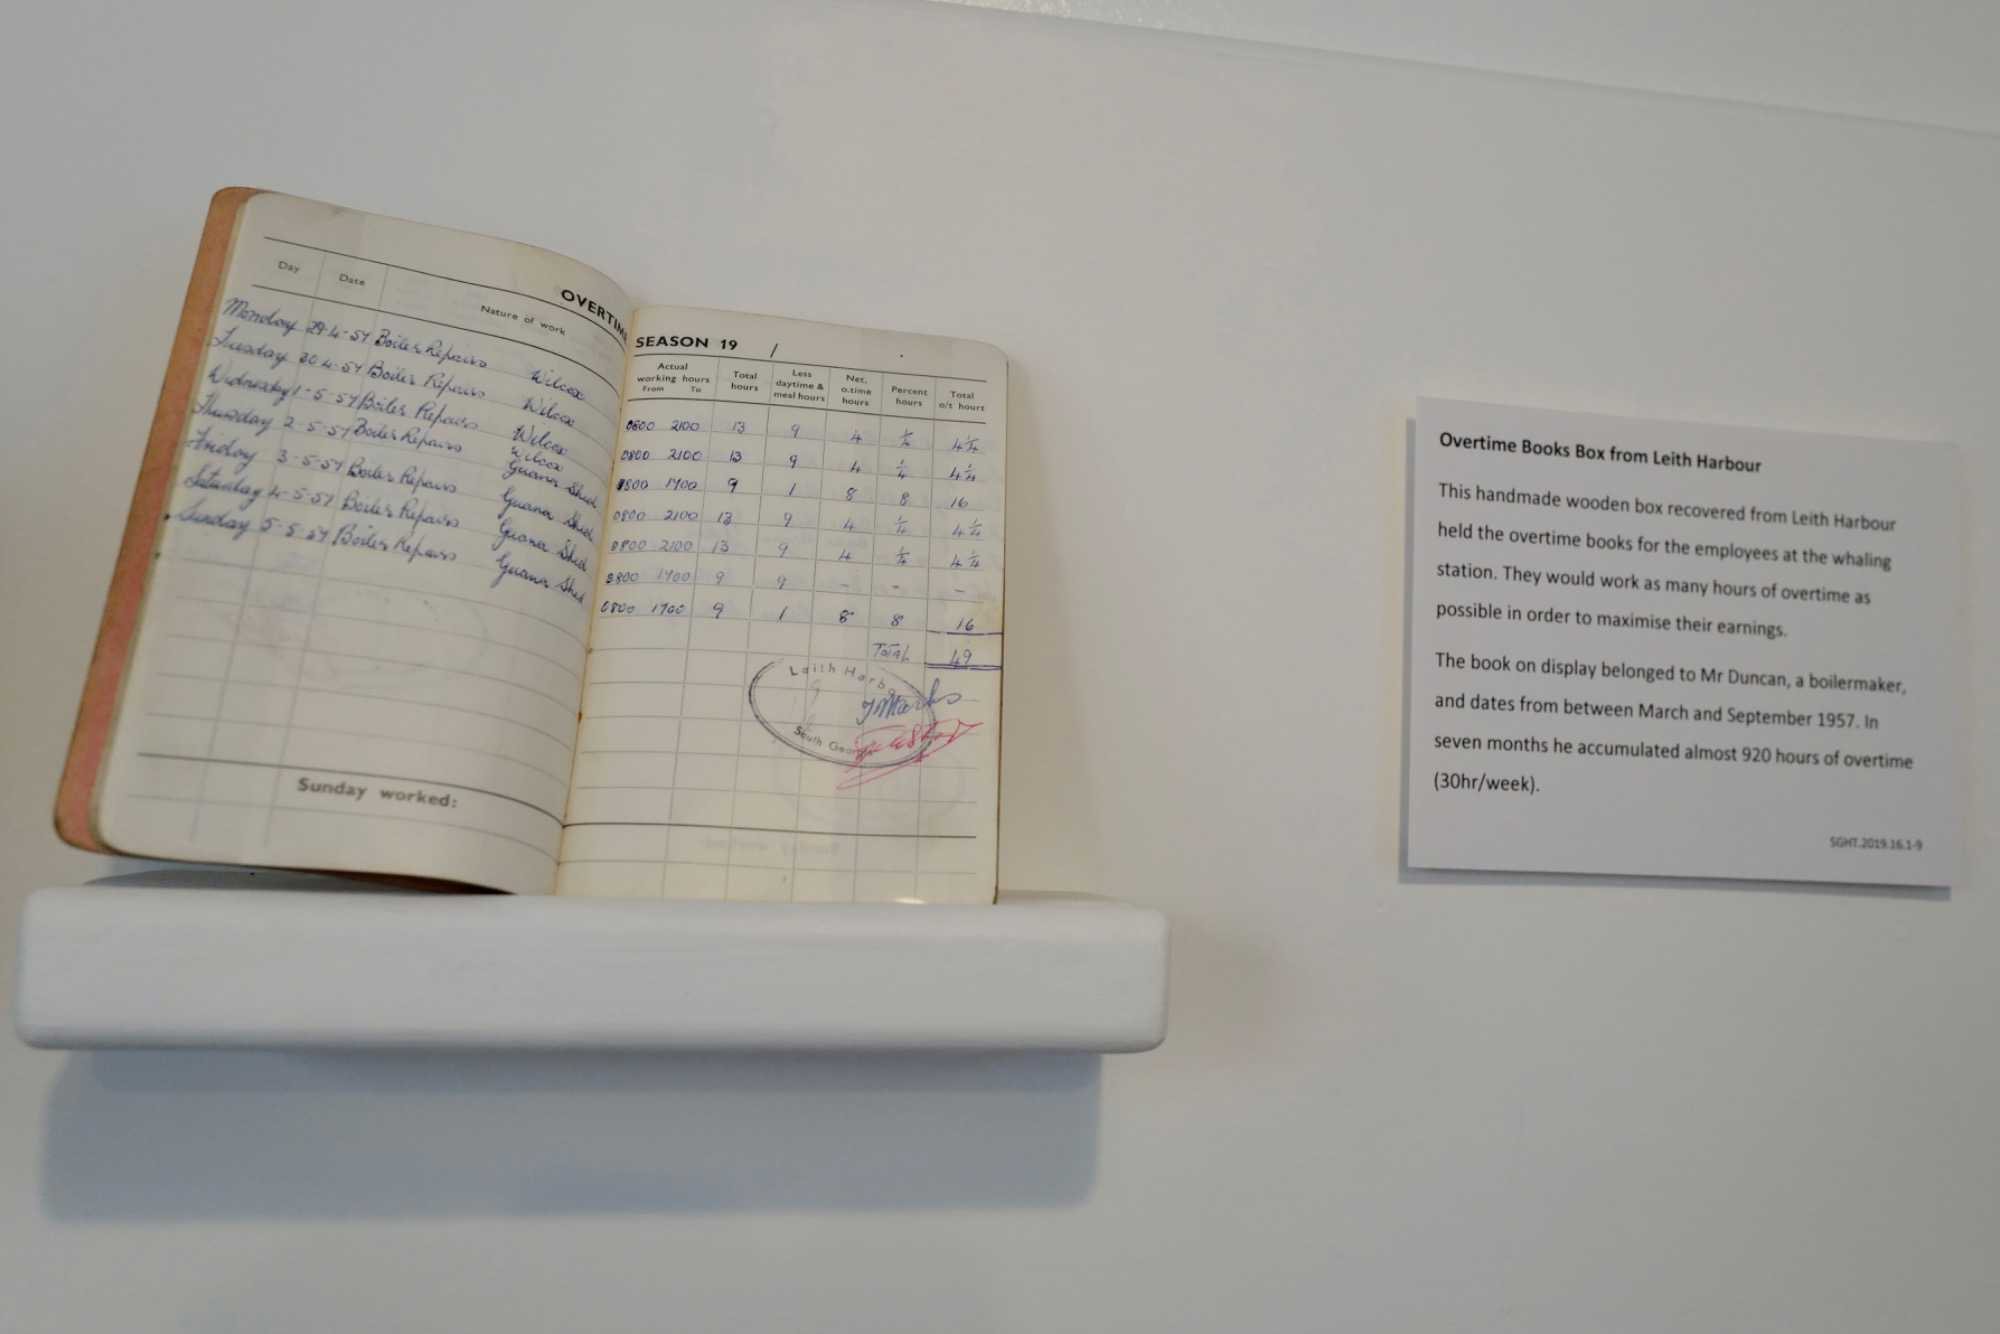 OVERTIM
Day Date Nature of work
Monday 29-4-57 Boiler Repairs Wilcox
Tuesday 30-4-57 Boiler Repairs Wilcox
Wednesday 1-5-57 Boiler Repairs Wilcox
Wilcox
Thursday 2-5-57 Boiler Repairs Guano Shed
Friday 3-5-57 Boiler Repairs Guano Shed
Saturday 4-5-57 Boiler Repairs Guano Shed
Sunday 5-5-57 Boiler Repairs Guano Shed
Sunday worked:
SEASON 19 /
Actual working hours From To Total hours Less daytime & meal hours Net. o.time hours Percent hours Total o/t hours
0800 2100 13 9 4 1/4 4 1/4
0800 2100 13 9 4 1/4 4 1/4
0800 1700 9 1 8 8 16
0800 2100 13 9 4 1/4 4 1/4
0800 2100 13 9 4 1/4 4 1/4
0800 1700 9 9 - - -
0800 1700 9 1 8 8 16
Total 49
Leith Harbo
South Georgia
Overtime Books Box from Leith Harbour
This handmade wooden box recovered from Leith Harbour
held the overtime books for the employees at the whaling
station. They would work as many hours of overtime as
possible in order to maximise their earnings.
The book on display belonged to Mr Duncan, a boilermaker,
and dates from between March and September 1957. In
seven months he accumulated almost 920 hours of overtime
(30hr/week).
SGHT.2019.16.1-9